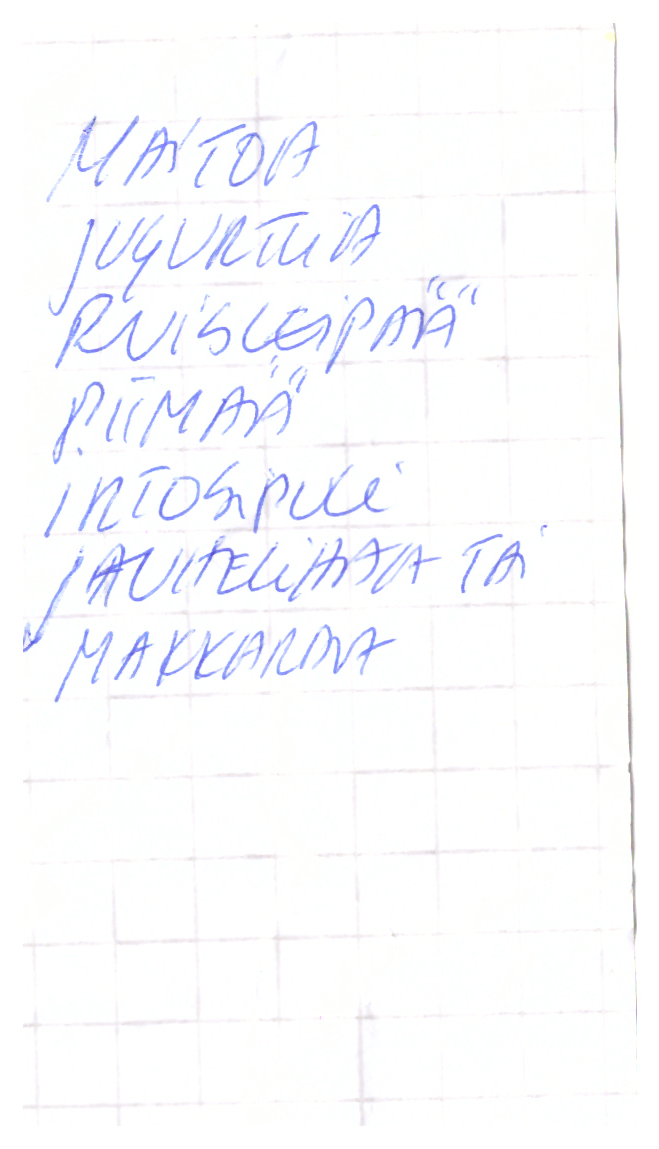 MAITOA
JUGURTTIA
RUISLEIPÄÄ
PIIMÄÄ
IRTOSIPULI
JAUHELIHAA TAI
MAKKARAA